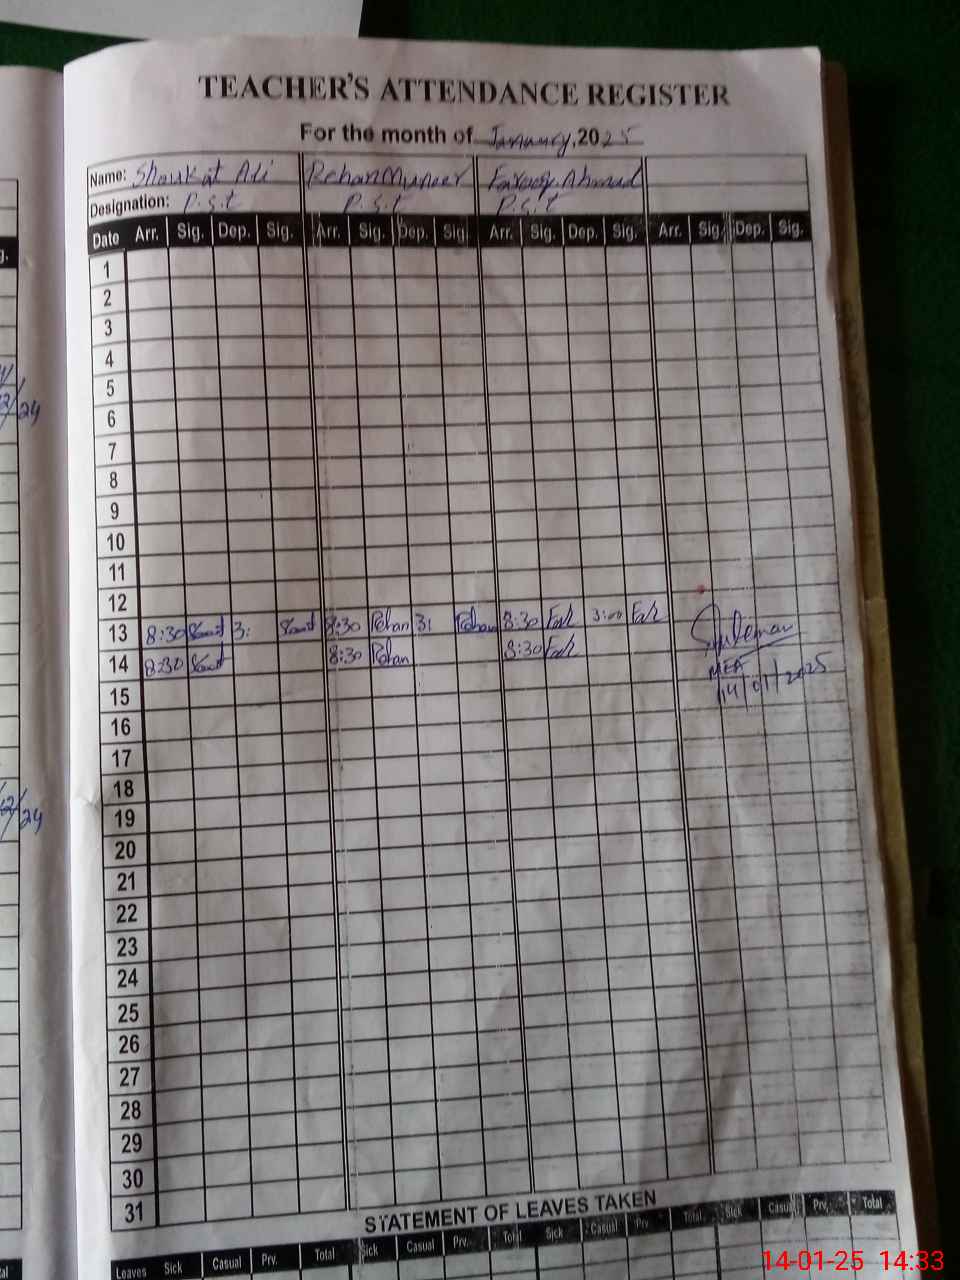 TEACHER'S ATTENDANCE REGISTER
For the month of January, 2025
Name: Shaukat Ali Rehan Muneer Farooq Ahmad
Designation: P.S.T P.S.T P.S.T
Date Arr. Sig. Dep. Sig. Arr. Sig. Dep. Sig. Arr. Sig. Dep. Sig. Arr. Sig. Dep. Sig.
1
2
3
4
5
6
7
8
9
10
11
12
13 8:30 3: 8:30 Rehan 3: Rehan 8:30 3:00
14 8:30 8:30 Rehan 8:30
Suleman
MEA
14/01/2025
15
16
17
18
19
20
21
22
23
24
25
26
27
28
29
30
31
STATEMENT OF LEAVES TAKEN
Leaves Sick Casual Prv. Total Sick Casual Prv. Total Sick Casual Prv. Total Sick Casual Prv. Total
14-01-25 14:33